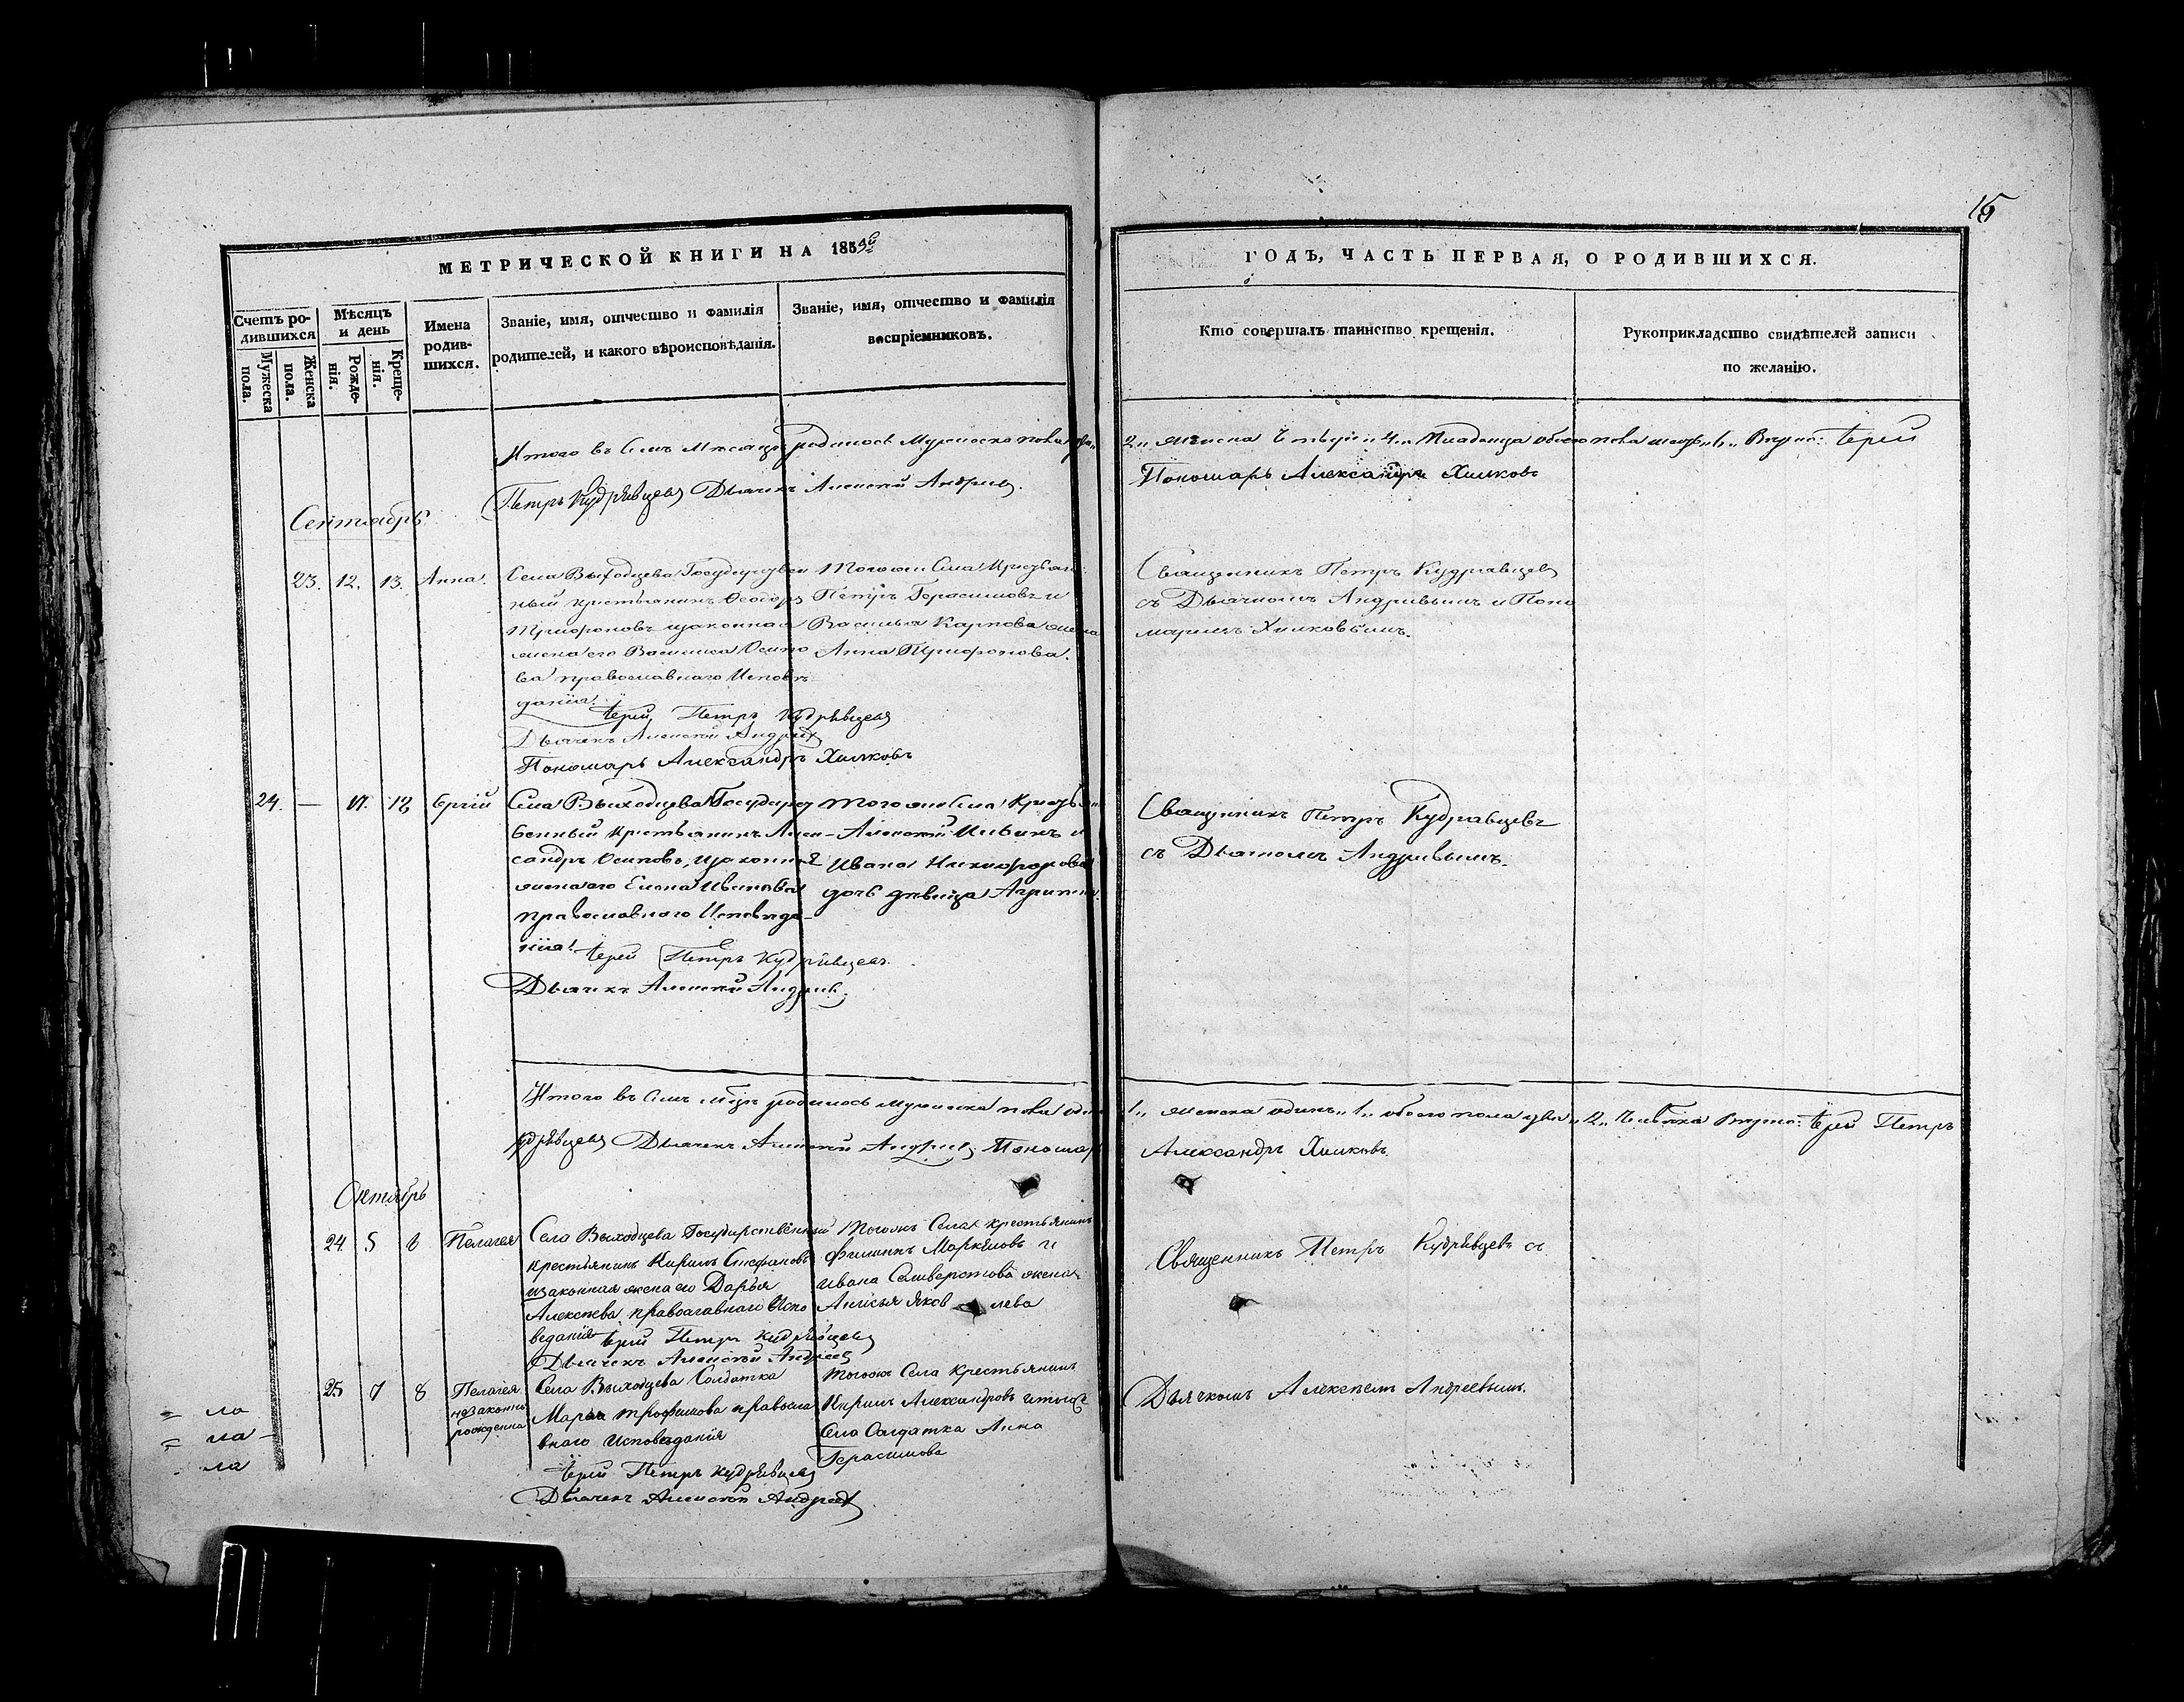 15
МЕТРИЧЕСКОЙ КНИГИ НА 1854й
ГОДЪ, ЧАСТЬ ПЕРВАЯ, О РОДИВШИХСЯ.
Счетъ ро-
дившихся
Мужеска
пола.
Женска
пола.
Мѣсяцъ
и день
Рожде-
нія.
Креще-
нія.
Имена
родив-
шихся.
Званіе, имя, отчество и фамилія
родителей, и какого вѣроисповѣданія.
Званіе, имя, отчество и фамилія
воспріемниковъ.
Кто совершалъ таинство крещенія.
Рукоприкладство свидѣтелей записи
по желанію.
Итого въ семъ Мѣсяцѣ родилось Мужеска пола два
2,, женска 4,, Младенца обоего пола 6,, Іерей
Петръ Кудрявцевъ Дьячекъ Алексѣй Андреевъ.
Пономарь Александръ Хилковъ
Сентябрь
23. 12. 13. Анна.
Села Выходцева Государствен
ный крестьянинъ Ѳеодоръ
Трифоновъ изаконная
жена его Василиса Осипо
ва православнаго Исповѣ
данія.
Іерей Петръ Кудрявцевъ
Дьячекъ Алексѣй Андреевъ
Пономарь Александръ Хилковъ
Тогоже Села Крестьян:
Петръ Герасимовъ и
Василья Карпова жена
Анна Трифонова.
Священникъ Петръ Кудрявцевъ
съ Дьячкомъ Андреевымъ и Поно
маремъ Хилковымъ.
24. — 17. 18 Сергій
Села Выходцева Государст
венный Крестьянинъ Алек-
сандръ Осиповъ, изаконная
жена его Елена Иванова
православнаго Исповѣда-
нія.
Іерей Петръ Кудрявцевъ.
Дьячекъ Алексѣй Андреевъ.
того же Села Крестья:
Алексѣй Ильинъ и
Ивана Никифорова
дочь дѣвица Агрипина.
Священникъ Петръ Кудрявцевъ
съ Дьячкомъ Андреевымъ.
Итого въ семъ мѣсяцѣ родилось мужеска пола одинъ
1,, женска одинъ,, 1,, обоего пола два,, 2,, Іерей Петръ
Кудрявцевъ Дьячекъ Алексѣй Андреевъ Пономарь
Александръ Хилковъ.
Октябрь
24 5 6 Пелагея
Села Выходцева Государственный
крестьянинъ Кирилъ Стефановъ
изаконная жена ево Дарья
Алексѣева, православнаго Испо
веданія
Іерей Петръ Кудрявцевъ
Дьячекъ Алексѣй Андреевъ
Тогожъ Села крестьянинъ
Филипъ Маркеловъ и
Ивана Селиверстова жена
Анисья Яковлева
Священникъ Петръ Кудрявцевъ съ
25 7 8 Пелагея
незаконно
рожденна
Села Выходцева Солдатка
Марья Трофимова православ
внаго Исповеданія
Іерей Петръ Кудрявцевъ
Дьячекъ Алексѣй Андреевъ
тогожъ Села Крестьянинъ
Кирилъ Александровъ итогоже
Села Солдатка Анна
Герасимова
Дьячкомъ Алексѣемъ Андреевымъ.
= ла
= ла -
ла